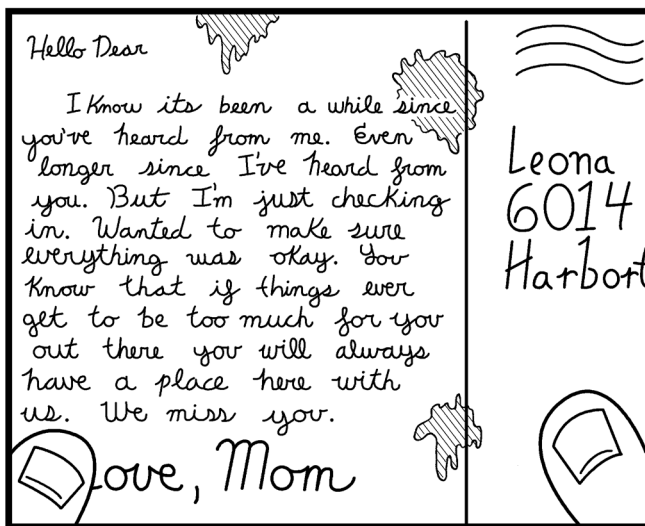 Hello Dear
I know its been a while since
you've heard from me. Even
longer since I've heard from
you. But I'm just checking
in. Wanted to make sure
everything was okay. You
know that if things ever
get to be too much for you
out there you will always
have a place here with
us. We miss you.
ove, Mom
Leona
6014
Harbort